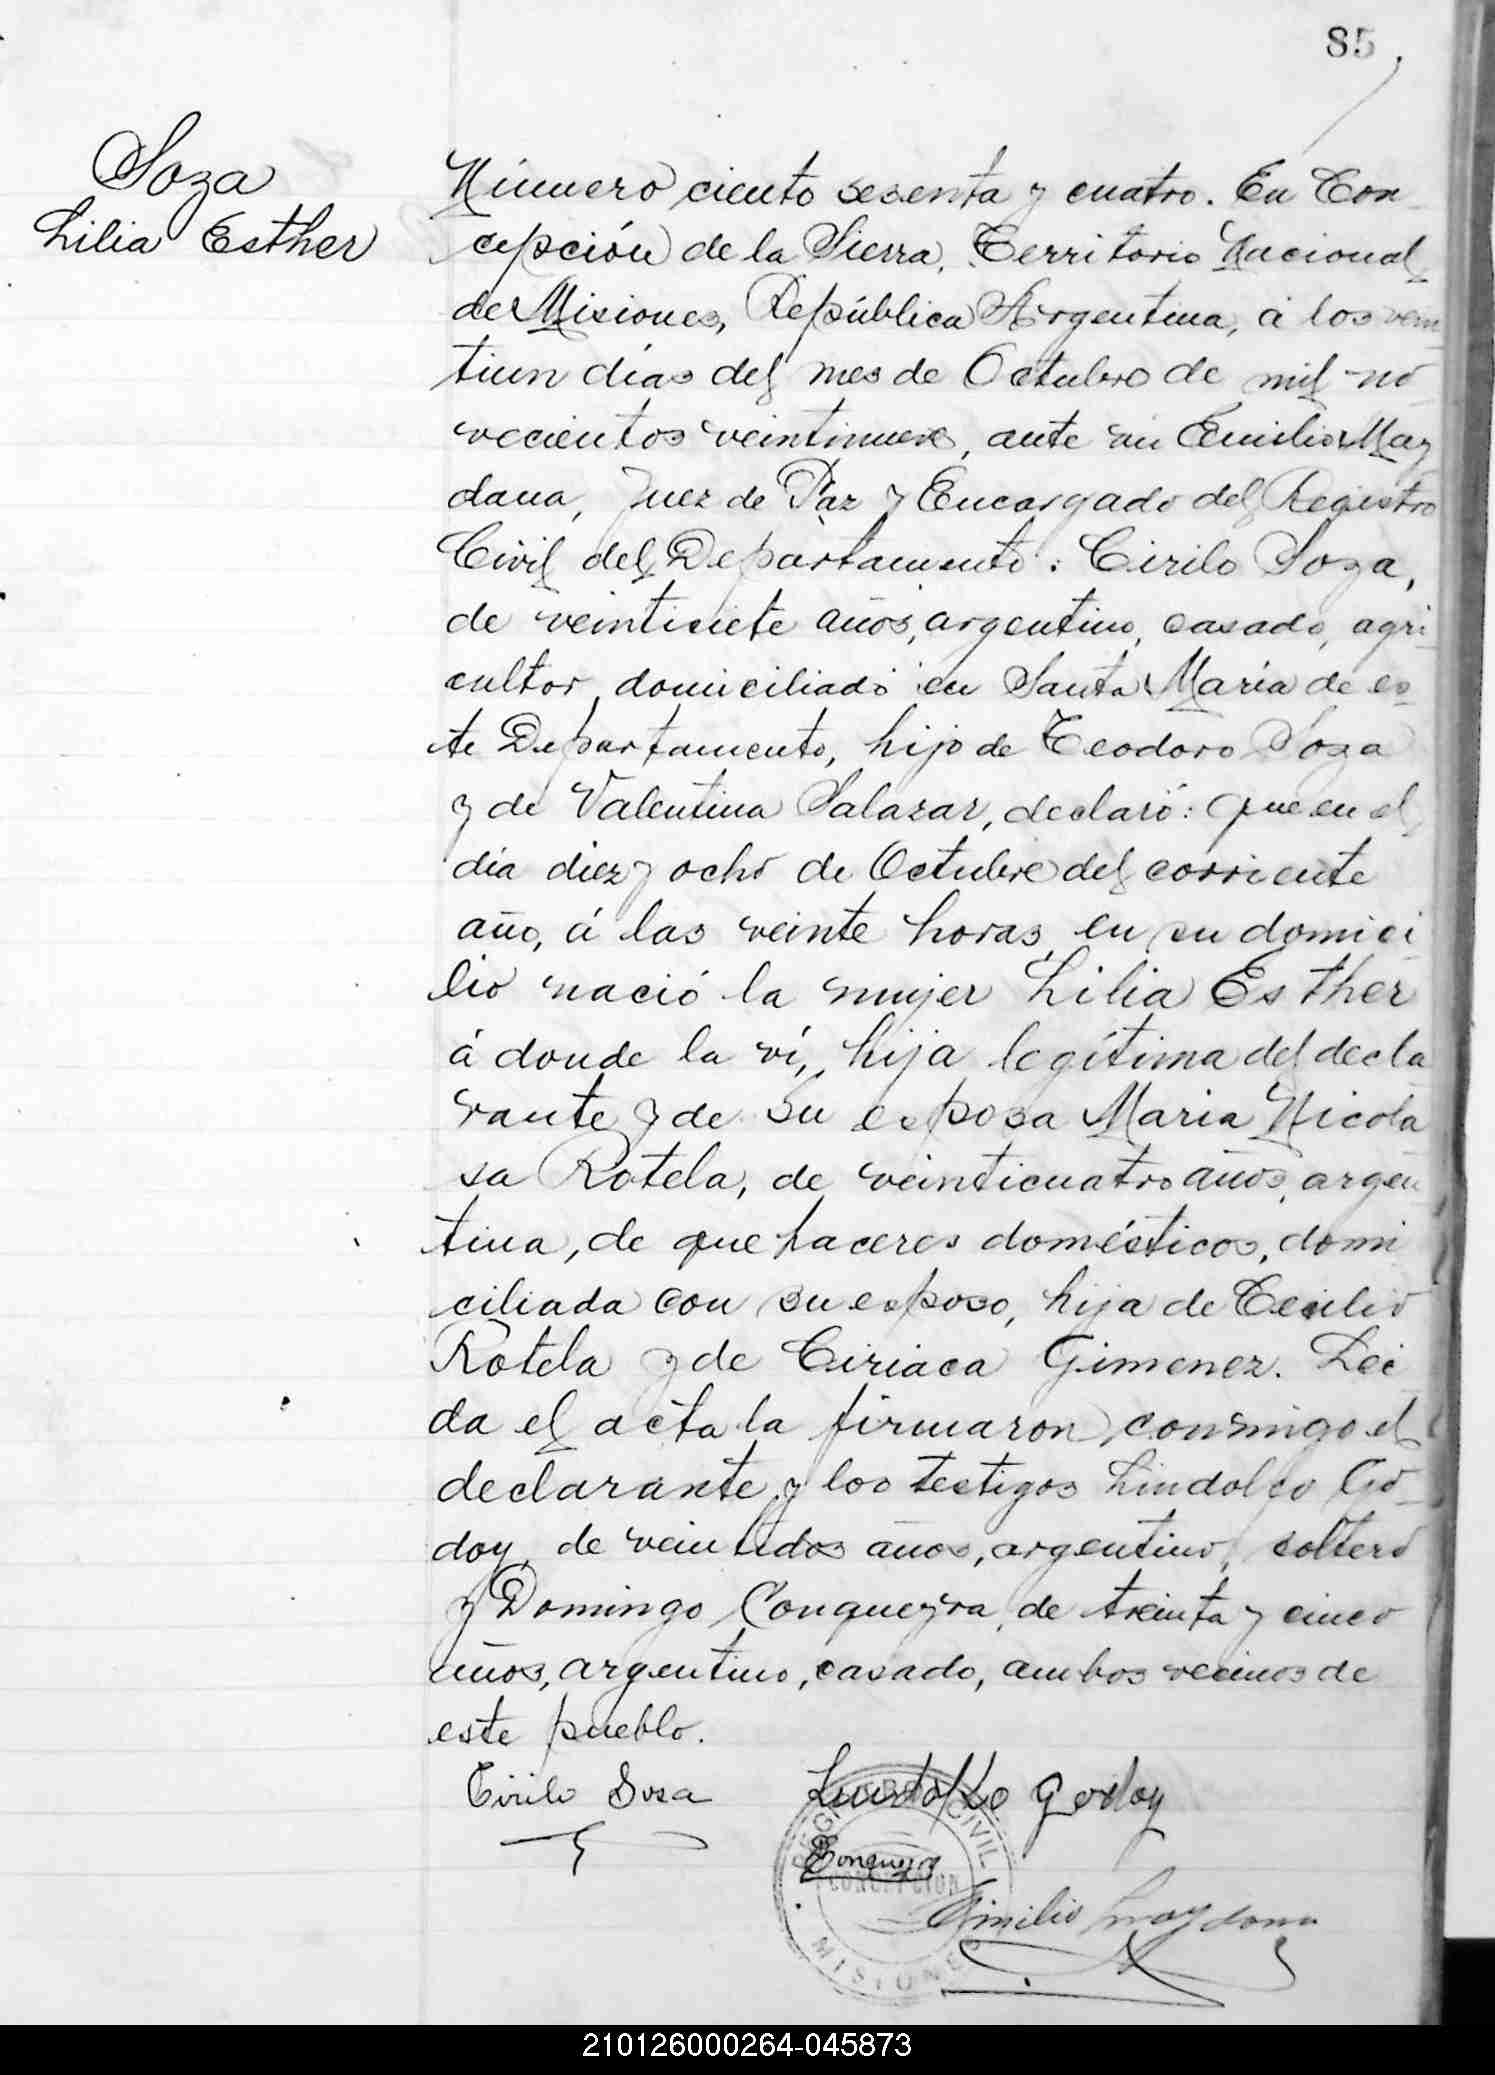 85
Soza
Lilia Esther
Número ciento sesenta y cuatro. En Con
cepción de la Sierra, Territorio Nacional
de Misiones, República Argentina, á los vein
tiun días del mes de Octubre de mil no
vecientos veintinueve, ante mi Emilio May
dana, Juez de Paz y Encargado del Registro
Civil del Departamento: Cirilo Soza,
de veintisiete años, argentino, casado, agri
cultor, domiciliado en Santa María de es
te Departamento, hijo de Teodoro Soza
y de Valentina Salazar, declaró: que en el
día diez y ocho de Octubre del corriente
año, á las veinte horas, en su domici
lio nació la mujer Lilia Esther
á donde la ví, hija legítima del decla
rante y de su esposa Maria Nicola
sa Rotela, de veinticuatro años, argen
tina, de que haceres domésticos, domi
ciliada con su esposo, hija de Cecilio
Rotela y de Ciriaca Gimenez. Lei
da el acta la firmaron conmigo el
declarante y los testigos Lindolfo Go-
doy, de veintidos años, argentino, soltero
y Domingo Conqueyra, de treinta y cinco
años, argentino, casado, ambos vecinos de
este pueblo.
Cirilo Sosa
Lindolfo Godoy
Conqueyra
Emilio Maydana
REGISTRO CIVIL
CONCEPCION
MISIONES
210126000264-045873